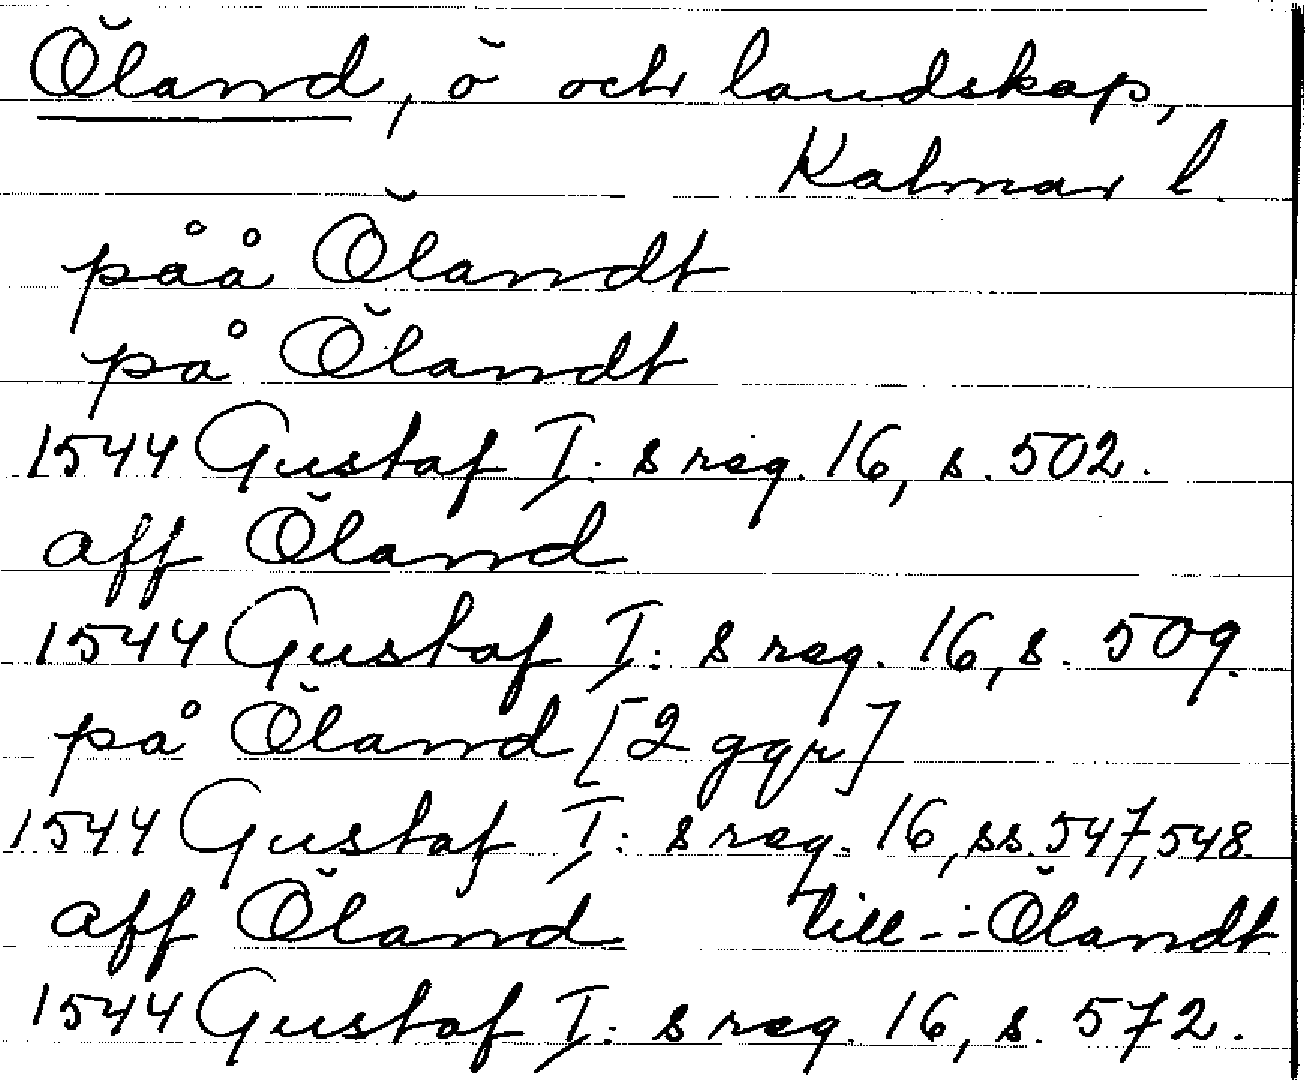 Öland, ö och landskap,
Kalmar l.
påå Ölandt
på Ölandt
1544 Gustaf I: s reg. 16, s. 502.
aff Öland
1544 Gustaf I: s reg. 16, s. 509.
på Öland [2 ggr]
1544 Gustaf I: s reg. 16, ss. 547, 548.
aff Öland till -:- Ölandt
1544 Gustaf I: s reg. 16, s. 572.